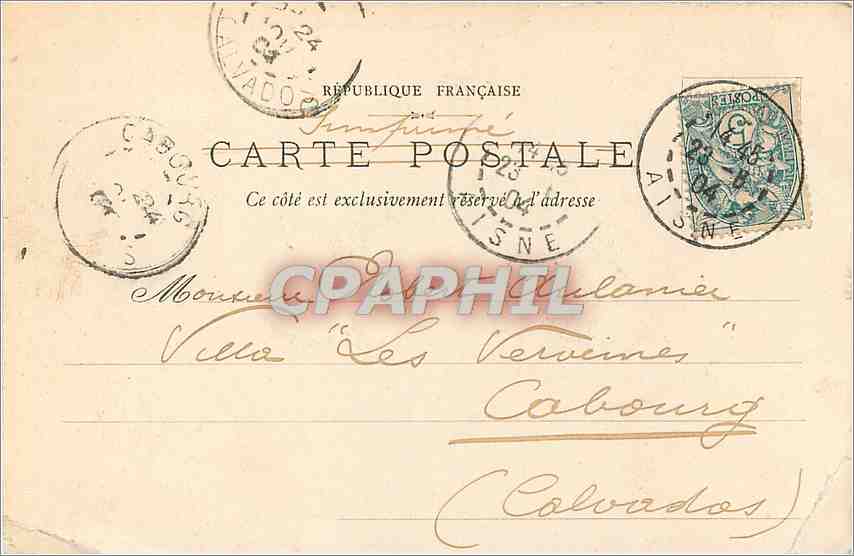 CALVADOS
24
RÉPUBLIQUE FRANÇAISE
Imprimé
CARTE POSTALE
Ce côté est exclusivement réservé à l'adresse
CABOURG
24
23
04
AISNE
POSTES
5
23
04
AISNE
CPAPHIL
Monsieur
Villa "Les Verveines"
Cabourg
(Calvados)